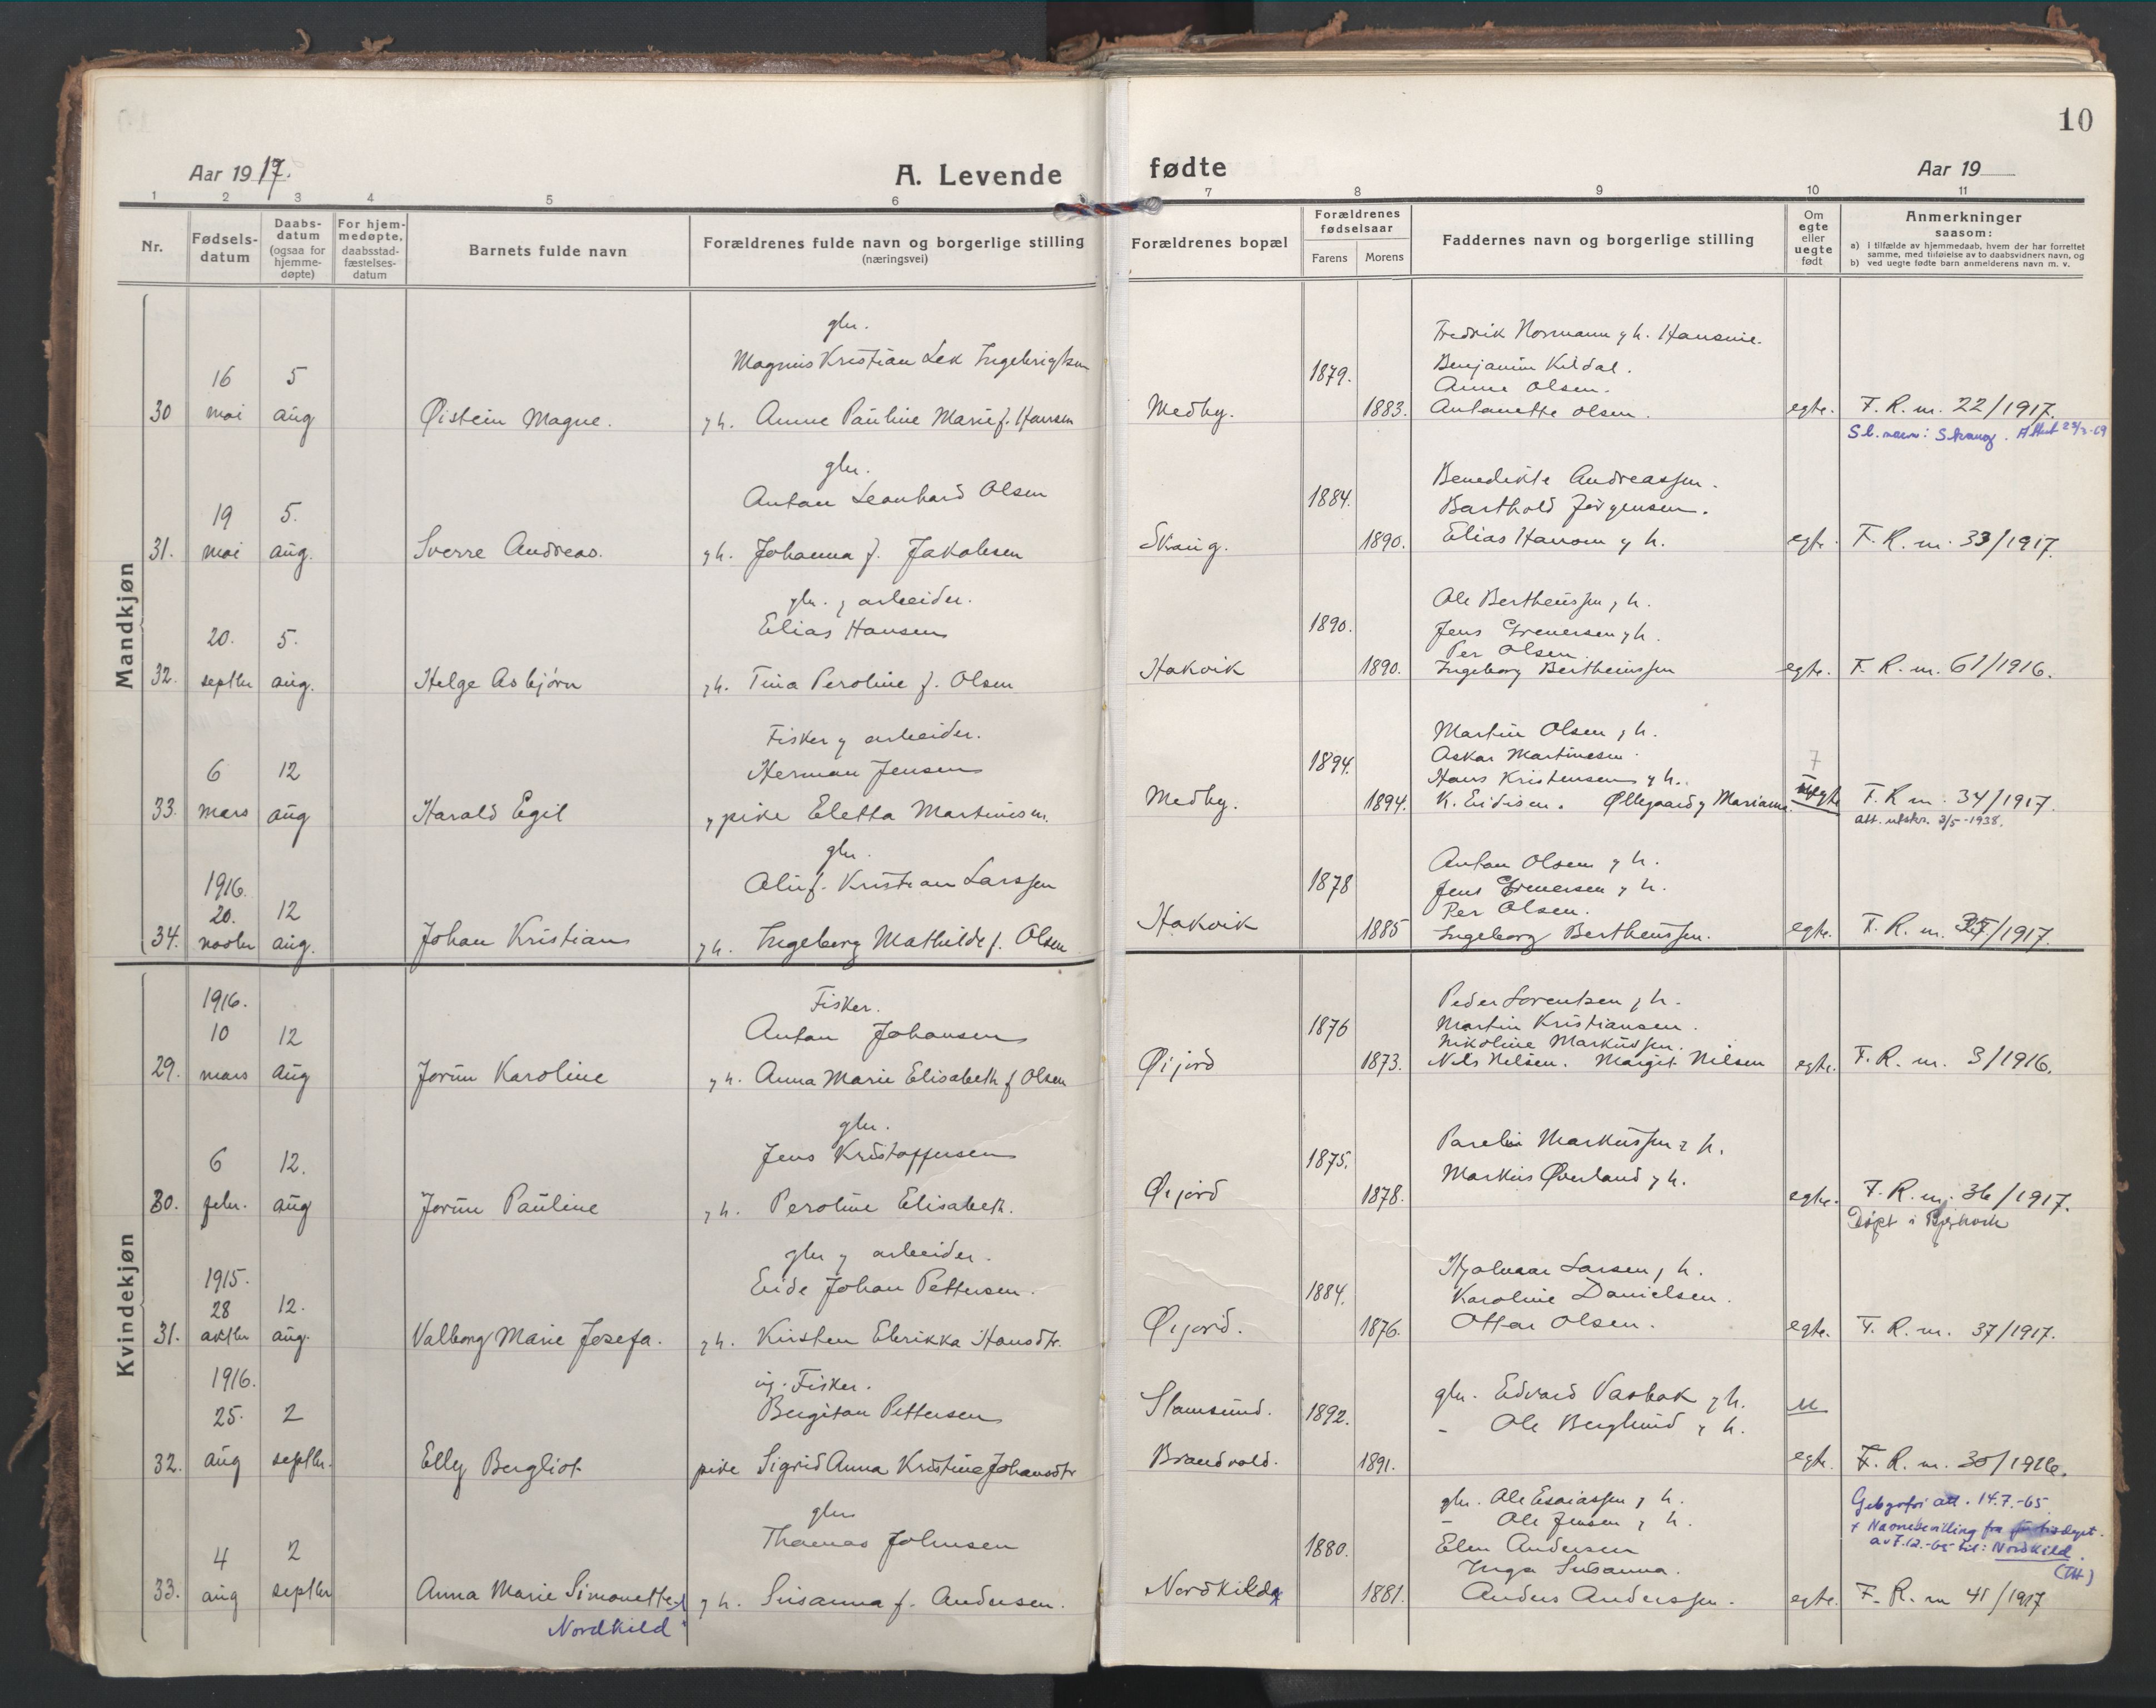 10
Aar 1917.
A. Levende
fødte
Aar 19
1 2 3 4 5 6 7 8 9 10 11
Nr.
Fødsels-
datum
Daabs-
datum
(ogsaa for
hjemme-
døpte)
For hjem-
medøpte,
daabsstad-
fæstelses-
datum
Barnets fulde navn
Forældrenes fulde navn og borgerlige stilling
(næringsvei)
Forældrenes bopæl
Forældrenes
fødselsaar
Farens
Morens
Faddernes navn og borgerlige stilling
Om
egte
eller
uegte
født
Anmerkninger
saasom:
a) I tilfælde av hjemmedaab, hvem der har forrettet
samme, med tilføielse av to daabsvidners navn, og
b) ved uegte fødte barn anmelderens navn m. v.
Mandkjøn
gbr. Fredrik Normann y h. Hansine.
Magnus Kristian Lek Ingebrigtsen Benjamin Kildal.
16 5 1879. Anne Olsen.
30 mai aug Øistein Magne. y h. Anne Pauline Marie f. Hansen Medby. 1883. Antonette Olsen. egte. F. R. nr. 22/1917.
Sl. navn: Skaug.
gbr. Benedikte Andreassen.
Anton Leonhard Olsen 1884. Barthold Jørgensen.
19 5.
31. mai aug. Sverre Andreas. y h. Johanna f. Jakobsen Skaug. 1890. Elias Hanson y h. egte. F. R. nr. 33/1917.
gbr. y arbeider. Ole Bertheussen y h.
20. 5. Elias Hansen 1890. Jens Grenersen y h.
Per Olsen
32. septbr aug. Helge Asbjørn y h. Tina Peroline f. Olsen Hakvik 1890. Ingeborg Bertheussen egte. F. R. nr. 61/1916.
Fisker y arbeider. Martin Olsen y h.
6 12 Herman Jensen 1894. Oskar Martinesen 7
Hans Kristensen y h.
33. mars aug Harald Egil y pike Eletta Martinisen. Medby. 1894. K. Eidisen. Ollegaard y Marianne uegte F. R nr. 34/1917.
att. utskr. 3/5-1938.
gbr. Anton Olsen y h.
1916. Oluf Kristian Larssen 1878 Jens Grenersen y h.
20. 12 Per Olsen.
34. novbr aug. Johan Kristian y h. Ingeborg Mathilde f. Olsen Hakvik 1885 Ingeborg Bertheussen. egte. F. R. nr. 35/1917.
Kvindekjøn
1916. Fisker. Peder Lorentsen y h.
10 12 Anton Johansen 1876 Martin Kristiansen.
Nikoline Markussen.
29. mars aug Jorun Karoline y h. Anna Marie Elisabeth f Olsen Øijord 1873. Nils Nilsen. Margit Nilsen egte. F. R. nr. 3/1916.
gbr.
6 12. Jens Kristoffersen 1875. Parelin Markussen y h.
30. febr. aug Jorun Pauline y h. Peroline Elisabeth. Øijord 1878. Markus Øverland y h. egte. F. R. nr. 36/1917.
Døpt i Bjerkvik
gbr y arbeider. Hjalmar Larsen y h.
1915. Eide Johan Pettersen. 1884. Karoline Danielsen.
28 12.
31. oktbr aug. Valborg Marie Josefa. y h. Kirsten Elerikka Hansdtr. Øijord. 1876. Ottar Olsen. egte. F. R. nr. 37/1917.
1916. ug. Fisker.
25. 2 Bergiton Pettersen Slamsund. 1892. gbr. Edvard Vasbak y h. u
- Ole Berglund y h.
32. aug septbr. Elly Bergliot pike Sigrid Anna Kristine Johansdtr Brandvold. 1891. egte. F. R. nr. 30/1916.
gbr gbr. Ole Esaiassen y h.
- Ole Jensen y h. att. 14.7.-65
+ Navnebevilling fra justisdept.
4 2 Thomas Johnsen 1880. Elen Andersen av 7.12.-65 til: Nordkild.
Inga Susanna.
33. aug septbr Anna Marie Simonette y h. Susanna f. Andersen. Nordkild 1881. Anders Anderssen. egte. F. R. nr 41/1917
Nordkild